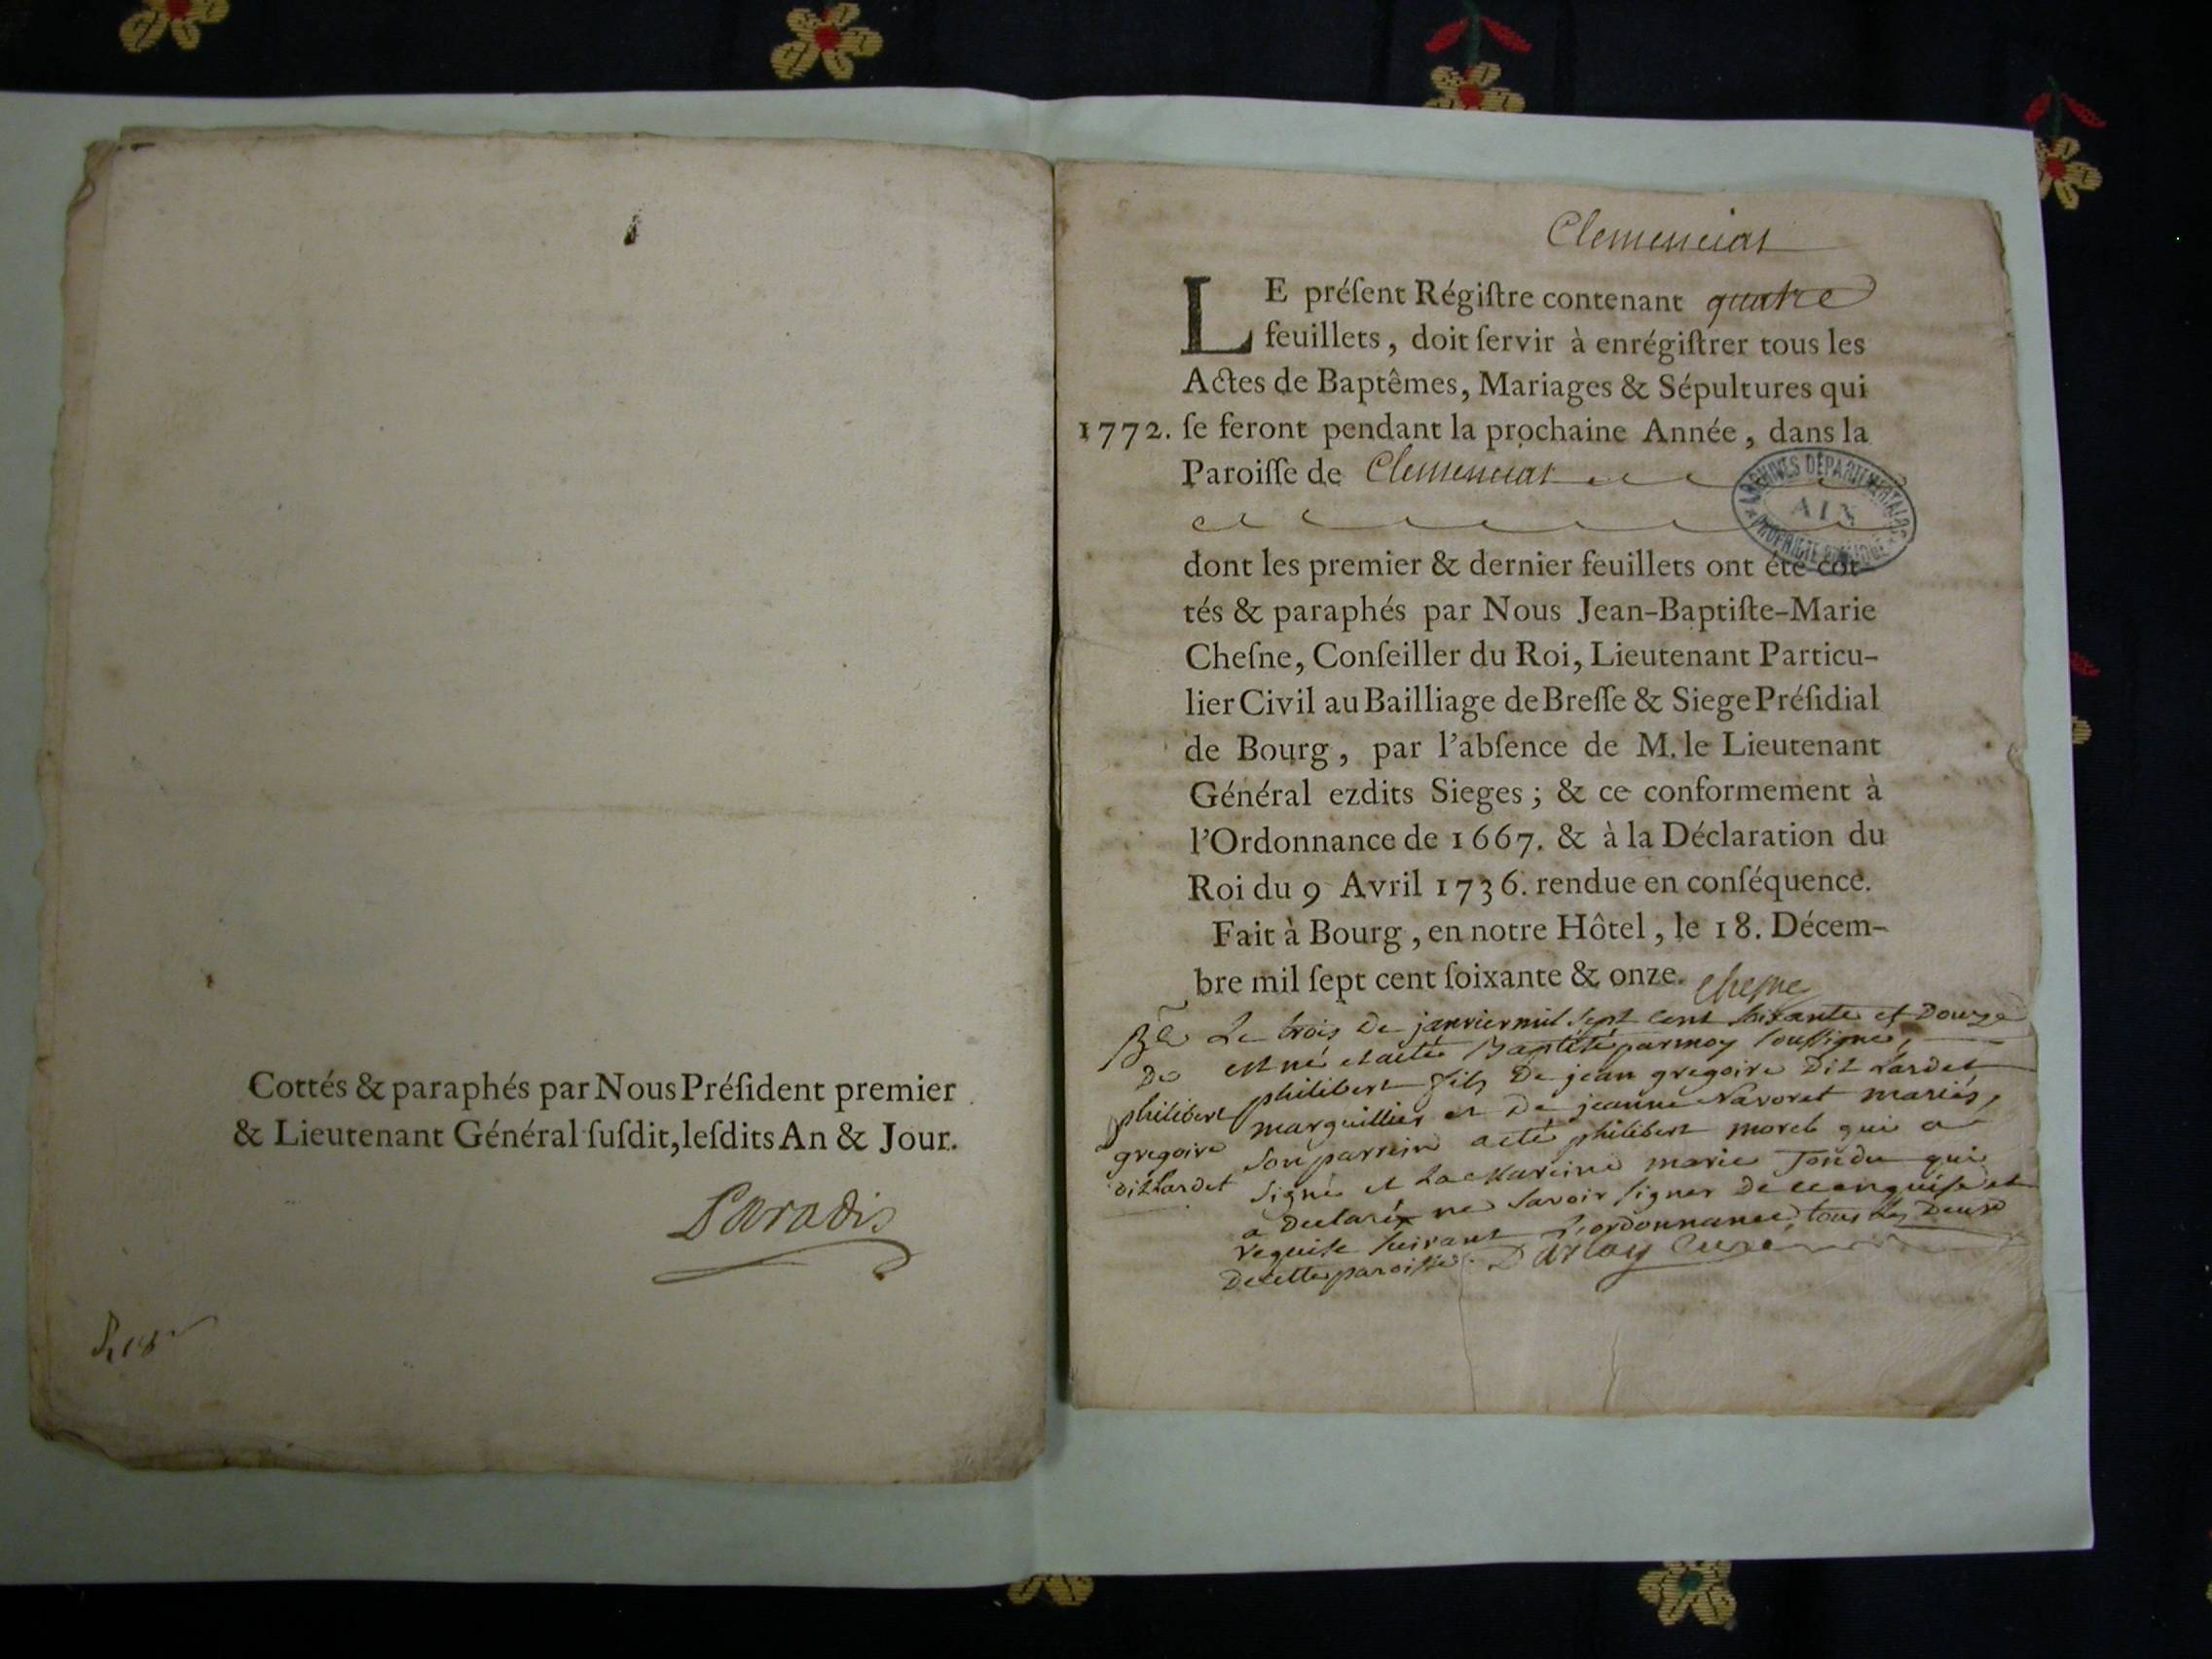 Cottés & paraphés par Nous Préſident premier
& Lieutenant Général ſuſdit, leſdits An & Jour.
Paradis
Clemenciat
LE préſent Régiſtre contenant quatre
feuillets, doit ſervir à enrégiſtrer tous les
Actes de Baptêmes, Mariages & Sépultures qui
1772. ſe feront pendant la prochaine Année, dans la
Paroiſſe de Clemenciat
ARCHIVES DÉPARTEMENTALES
AIN
PROPRIÉTÉ PUBLIQUE
dont les premier & dernier feuillets ont été cot-
tés & paraphés par Nous Jean-Baptiſte-Marie
Cheſne, Conſeiller du Roi, Lieutenant Particu-
lier Civil au Bailliage de Breſſe & Siege Préſidial
de Bourg, par l'abſence de M. le Lieutenant
Général ezdits Sieges; & ce conformement à
l'Ordonnance de 1667. & à la Déclaration du
Roi du 9 Avril 1736. rendue en conſéquence.
Fait à Bourg, en notre Hôtel, le 18. Décem-
bre mil ſept cent ſoixante & onze. Cheſne
Le trois De janvier mil Sept Cent Soixante et Douze
De
philibert
gregoire
dit Lardet
est né et a eté Baptisé par moy Soussigné,
philibert fils De jean gregoire Dit Lardet
marguillier et De jeanne Navoret mariés,
Son parrein a eté philibert morel qui a
Signé et La Mareine marie Tondu qui
a Declaré ne Savoir Signer De ce enquise et
requise Suivant L'ordonnance, tous Les Deux
De cette paroisse. Darlay Curé